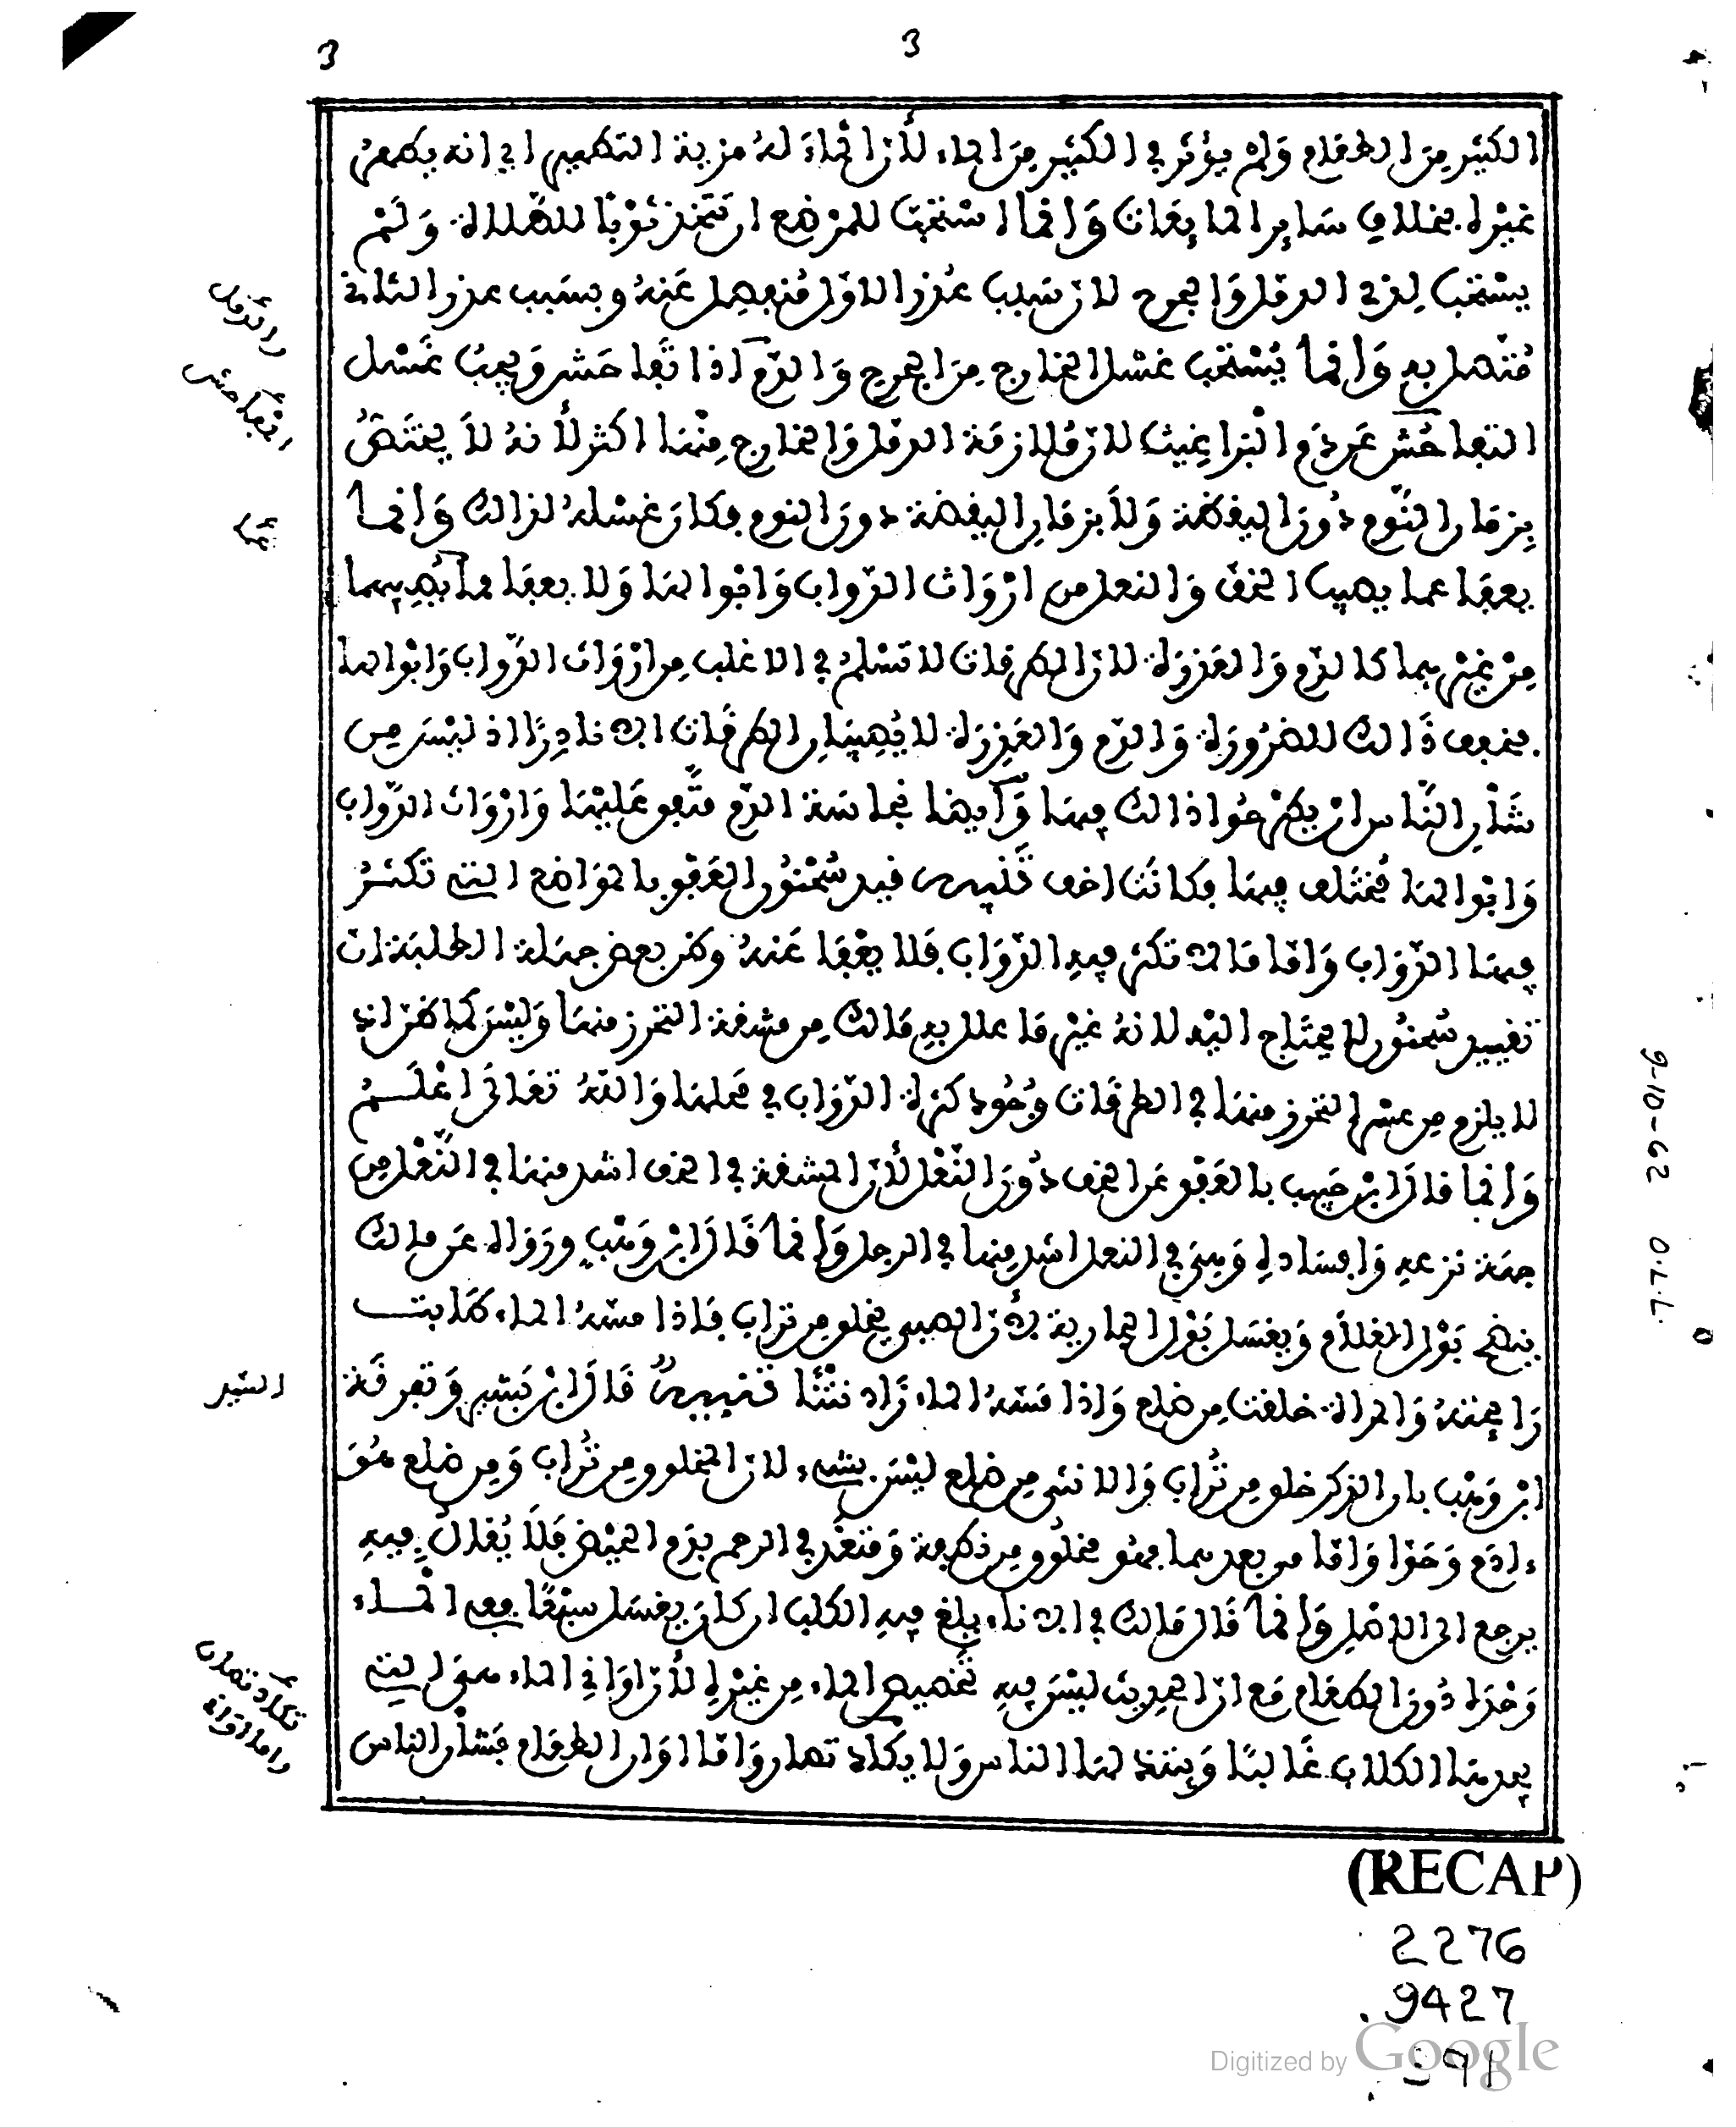 3 3
الكثير من الطعام ولم يؤثر في الكثير من الماء لأن الماء له مزية التطهير اي انه يطهر
غيره بخلاف سائر المايعات وانما استحب للمرضع ان تتخذ ثوبا للصلاة ولم
يستحب لذي الدمل والجرح لان سبب عذر الاول منفصل عنه وبسبب عذر الثاني
متصل به وانما يستحب غسل الخارج من الجرح والدم اذا تفاحش ويجب غسل
المتفاحش من دم البراغيث لان ملازمة الدمل والخارج منها اكثر لأنه لا يختص
بزمان النوم دون اليقظة ولا بزمان اليقظة دون النوم فكان غسله لذالك وانما
يعفا عما يصيب الخف والنعل من ارواث الدواب وابوالها ولا يعفا عما يصيبهما
من غيرهما كالدم والعذرة لان الطرقات لا تسلم في الاغلب من ارواث الدواب وابوالها
فخفف ذالك للضرورة والدم والعذرة لا يصيبان الطرقات الا نادرا اذ ليس من
شأن الناس ان يطرحوا ذالك فيها وأيضا نجاسة الدم متفق عليها وارواث الدواب
وابوالها مختلف فيها فكانت اخف تنبيه قيد سحنون العفو بالمواضع التي تكثر
فيها الدواب واما ما لا تكثر فيه الدواب فلا يعفا عنه وظن بعض جهلة الطلبة ان
تقييد سحنون لا يحتاج اليه لانه غير ما علل به مالك من مشقة التحرز منها وليس كما ظن اذ
لا يلزم من عسر التحرز منها في الطرقات وجود كثرة الدواب في محلها والله تعالى اعلم
وانما قال ابن حبيب بالعفو عن الخف دون النعل لأن المشقة في الخف اشد منها في النعل من
جهة نزعه وافساده وهي في النعل اشد منها في الرجل وانما قال ابن وهب ورواه عن مالك
ينضح بول الغلام ويغسل بول الجارية لأن الصبي خلق من تراب فاذا مسه الماء طابت
رايحته والمراة خلقت من ضلع واذا مسه الماء زاد نتنا تنبيه قال ابن بشير وتفرقة
ابن وهب بان الذكر خلق من تراب والانثى من ضلع ليس بشيء لان المخلوق من تراب ومن ضلع هو
ءادم وحوا واما من بعدهما فهو مخلوق من نطفة ومتغذ في الرحم بدم الحيض فلا يقال فيه
يرجع الى الاصل وانما قال مالك في الاناء يلغ فيه الكلب ان كان يغسل سبعا ففي الماء
وحده دون الطعام مع ان الحديث ليس فيه تخصيص الماء من غيره لأن اواني الماء هي التي
يجدها الكلاب غالبا ويبتذلها الناس ولا يكاد تصان واما اواني الطعام فشأن الناس
السير
9-10-62 O.L.L.
(RECAP)
2276
.9427
.591
Digitized by Google